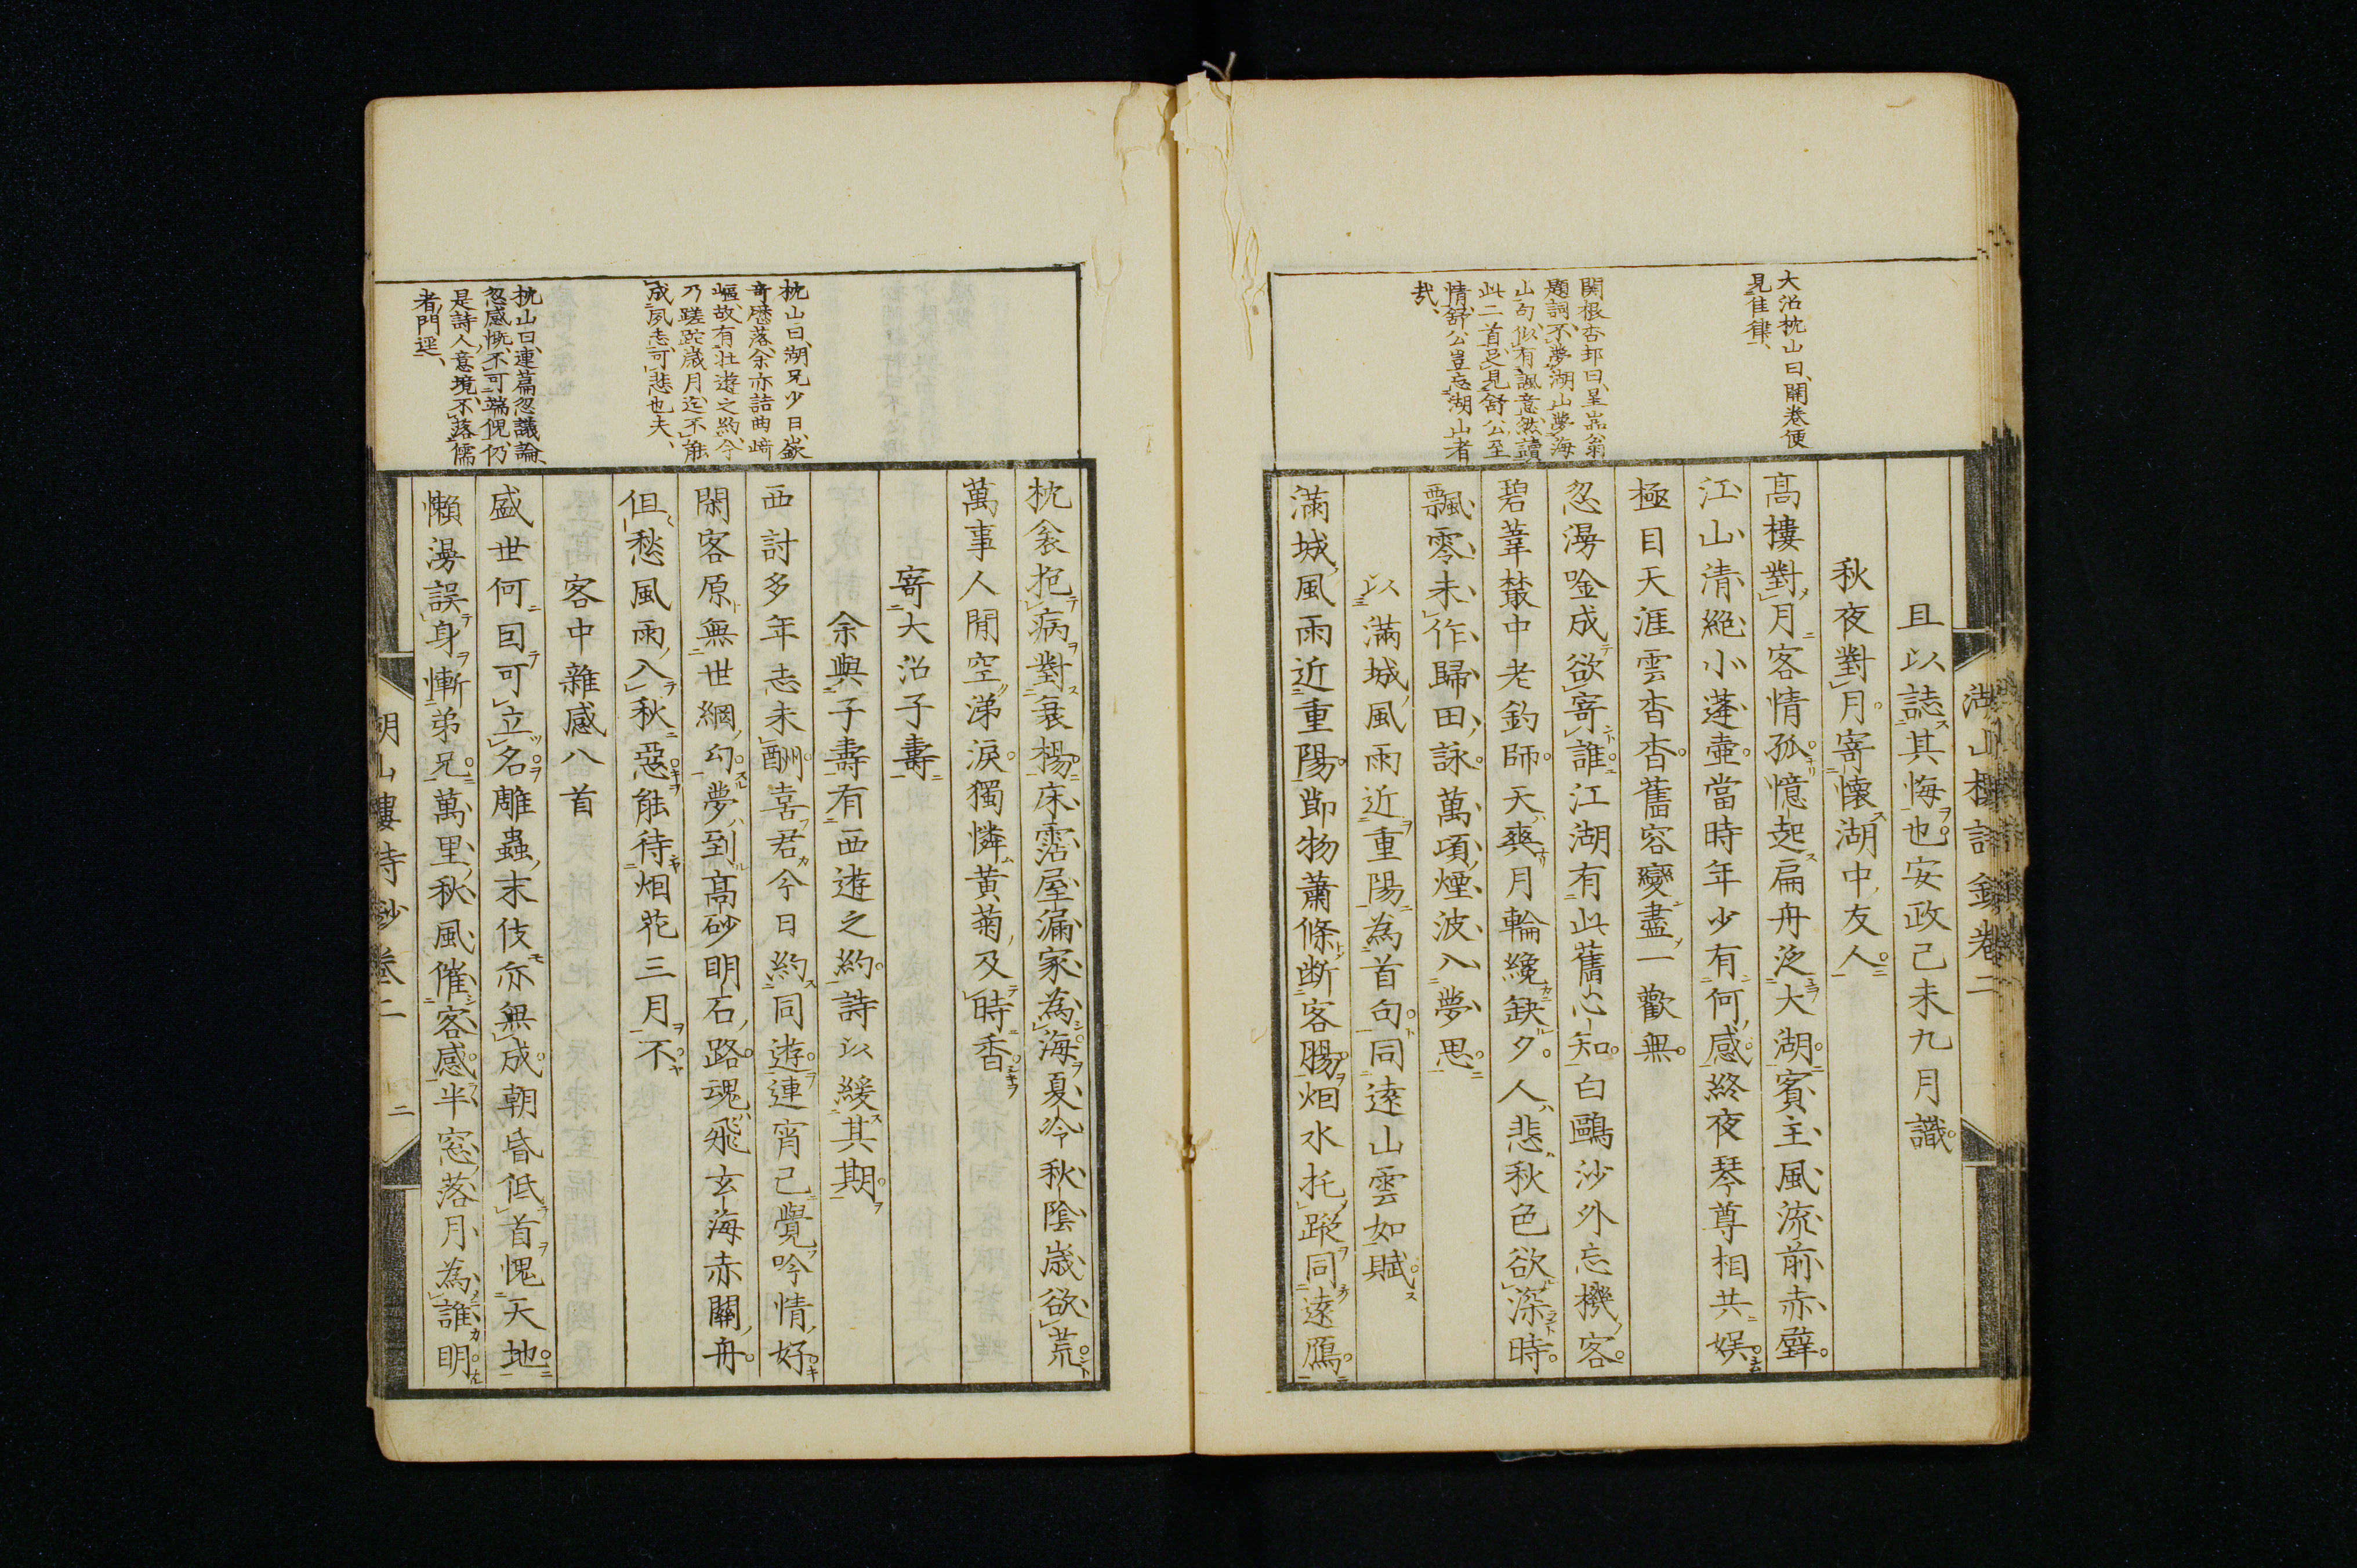 大沼枕山曰、開卷便
見佳律、
關根杏邨曰、呈崧翁
題詞、不夢湖山夢海
山句、似有諷意、然讀
此二首、足見舒公至
情、舒公豈忘湖山者
哉、
且以誌其悔也。安政己未九月識。
秋夜對月。寄懷湖中友人。
高樓對月客情孤。憶起扁舟泛大湖。賓主風流前赤壁。
江山清絕小蓬壺。當時年少有何感。終夜琴尊相共娛。
極目天涯雲杳杳。舊容變盡一歡無。
忽漫唫成欲寄誰。江湖有此舊心知。白鷗沙外忘機客。
碧葦叢中老釣師。天爽月輪纔缺夕。人悲秋色欲深時。
飄零未作歸田詠。萬頃煙波入夢思。
以滿城風雨近重陽為首句。同遠山雲如賦。
滿城風雨近重陽。節物蕭條断客腸。烟水托蹤同遠鴈。
枕衾抱病對衰楊。床霑屋漏家為海。夏冷秋陰歲欲荒。
萬事人間空涕淚。獨憐黃菊及時香。
寄大沼子壽
余與子壽有西遊之約。詩以緩其期。
西討多年志未酬。喜君今日約同遊。連宵已覺吟情好。
閑客原無世網幻。夢到高砂明石路。魂飛玄海赤關舟。
但愁風雨入秋惡。能待烟花三月不。
客中雜感八首
盛世何因可立名。雕蟲末伎亦無成。朝昏低首愧天地。
懶漫誤身慚弟兄。萬里秋風催客感。半窓落月為誰明。
枕山曰、湖兄少日、嶔
奇歷落、余亦詰曲崎
嶇、故有壯遊之約、今
乃蹉跎歲月、迄不能
成夙志、可悲也夫、
枕山曰、連篇忽議論、
忽感慨、不可端倪、仍
是詩人意境、不落儒
者門逕、
湖山樓詩鈔卷二
湖山樓詩鈔卷二
二